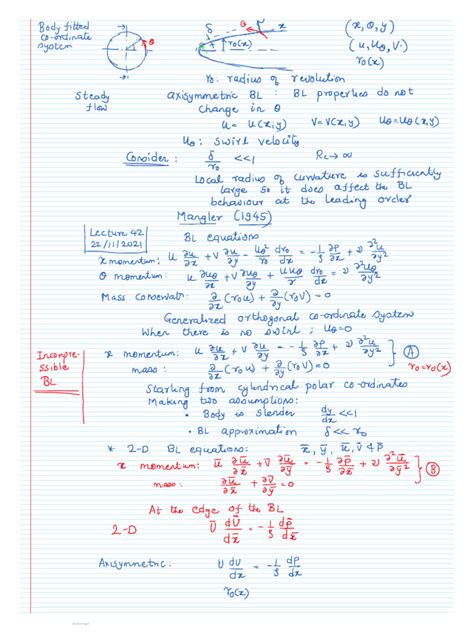 Body fitted
co-ordinate
system
θ
δ
θ
x
r₀(x)
(x, θ, y)
(u, uθ, v)
r₀(x)
r₀: radius of revolution
Steady
flow
axisymmetric BL : BL properties do not
change in θ
u = u(x,y) v = v(x,y) uθ = uθ(x,y)
uθ : swirl velocity
Consider : δ/r₀ <<1 Re → ∞
Local radius of curvature is sufficiently
large so it does affect the BL
behaviour at the leading order
Mangler (1945)
Lecture 42
22/11/2021
BL equations
x momentum: u ∂u/∂x + v ∂u/∂y − uθ²/r₀ dr₀/dx = −1/ρ ∂p/∂x + ν ∂²u/∂y²
θ momentum: u ∂uθ/∂x + v ∂uθ/∂y + u uθ/r₀ dr₀/dx = ν ∂²uθ/∂y²
Mass Conservatn: ∂/∂x (r₀u) + ∂/∂y (r₀v) = 0
Generalized orthogonal co-ordinate system
When there is no swirl ; uθ=0
Incompre-
ssible
BL
x momentum: u ∂u/∂x + v ∂u/∂y = −1/ρ ∂p/∂x + ν ∂²u/∂y²
A
mass : ∂/∂x (r₀u) + ∂/∂y (r₀v) = 0
r₀=r₀(x)
Starting from cylindrical polar co-ordinates
Making two assumptions:
• Body is slender dy/dx <<1
• BL approximation δ << r₀
* 2-D BL equations: x̄, ȳ, ū, v̄ & p̄
x momentum: ū ∂ū/∂x̄ + v̄ ∂ū/∂ȳ = −1/ρ ∂p̄/∂x̄ + ν ∂²ū/∂ȳ²
B
mass: ∂ū/∂x̄ + ∂v̄/∂ȳ = 0
At the edge of the BL
2-D Ū dŪ/dx̄ = −1/ρ dp̄/dx̄
Axisymmetric: U dU/dx = −1/ρ dp/dx
r₀(x)